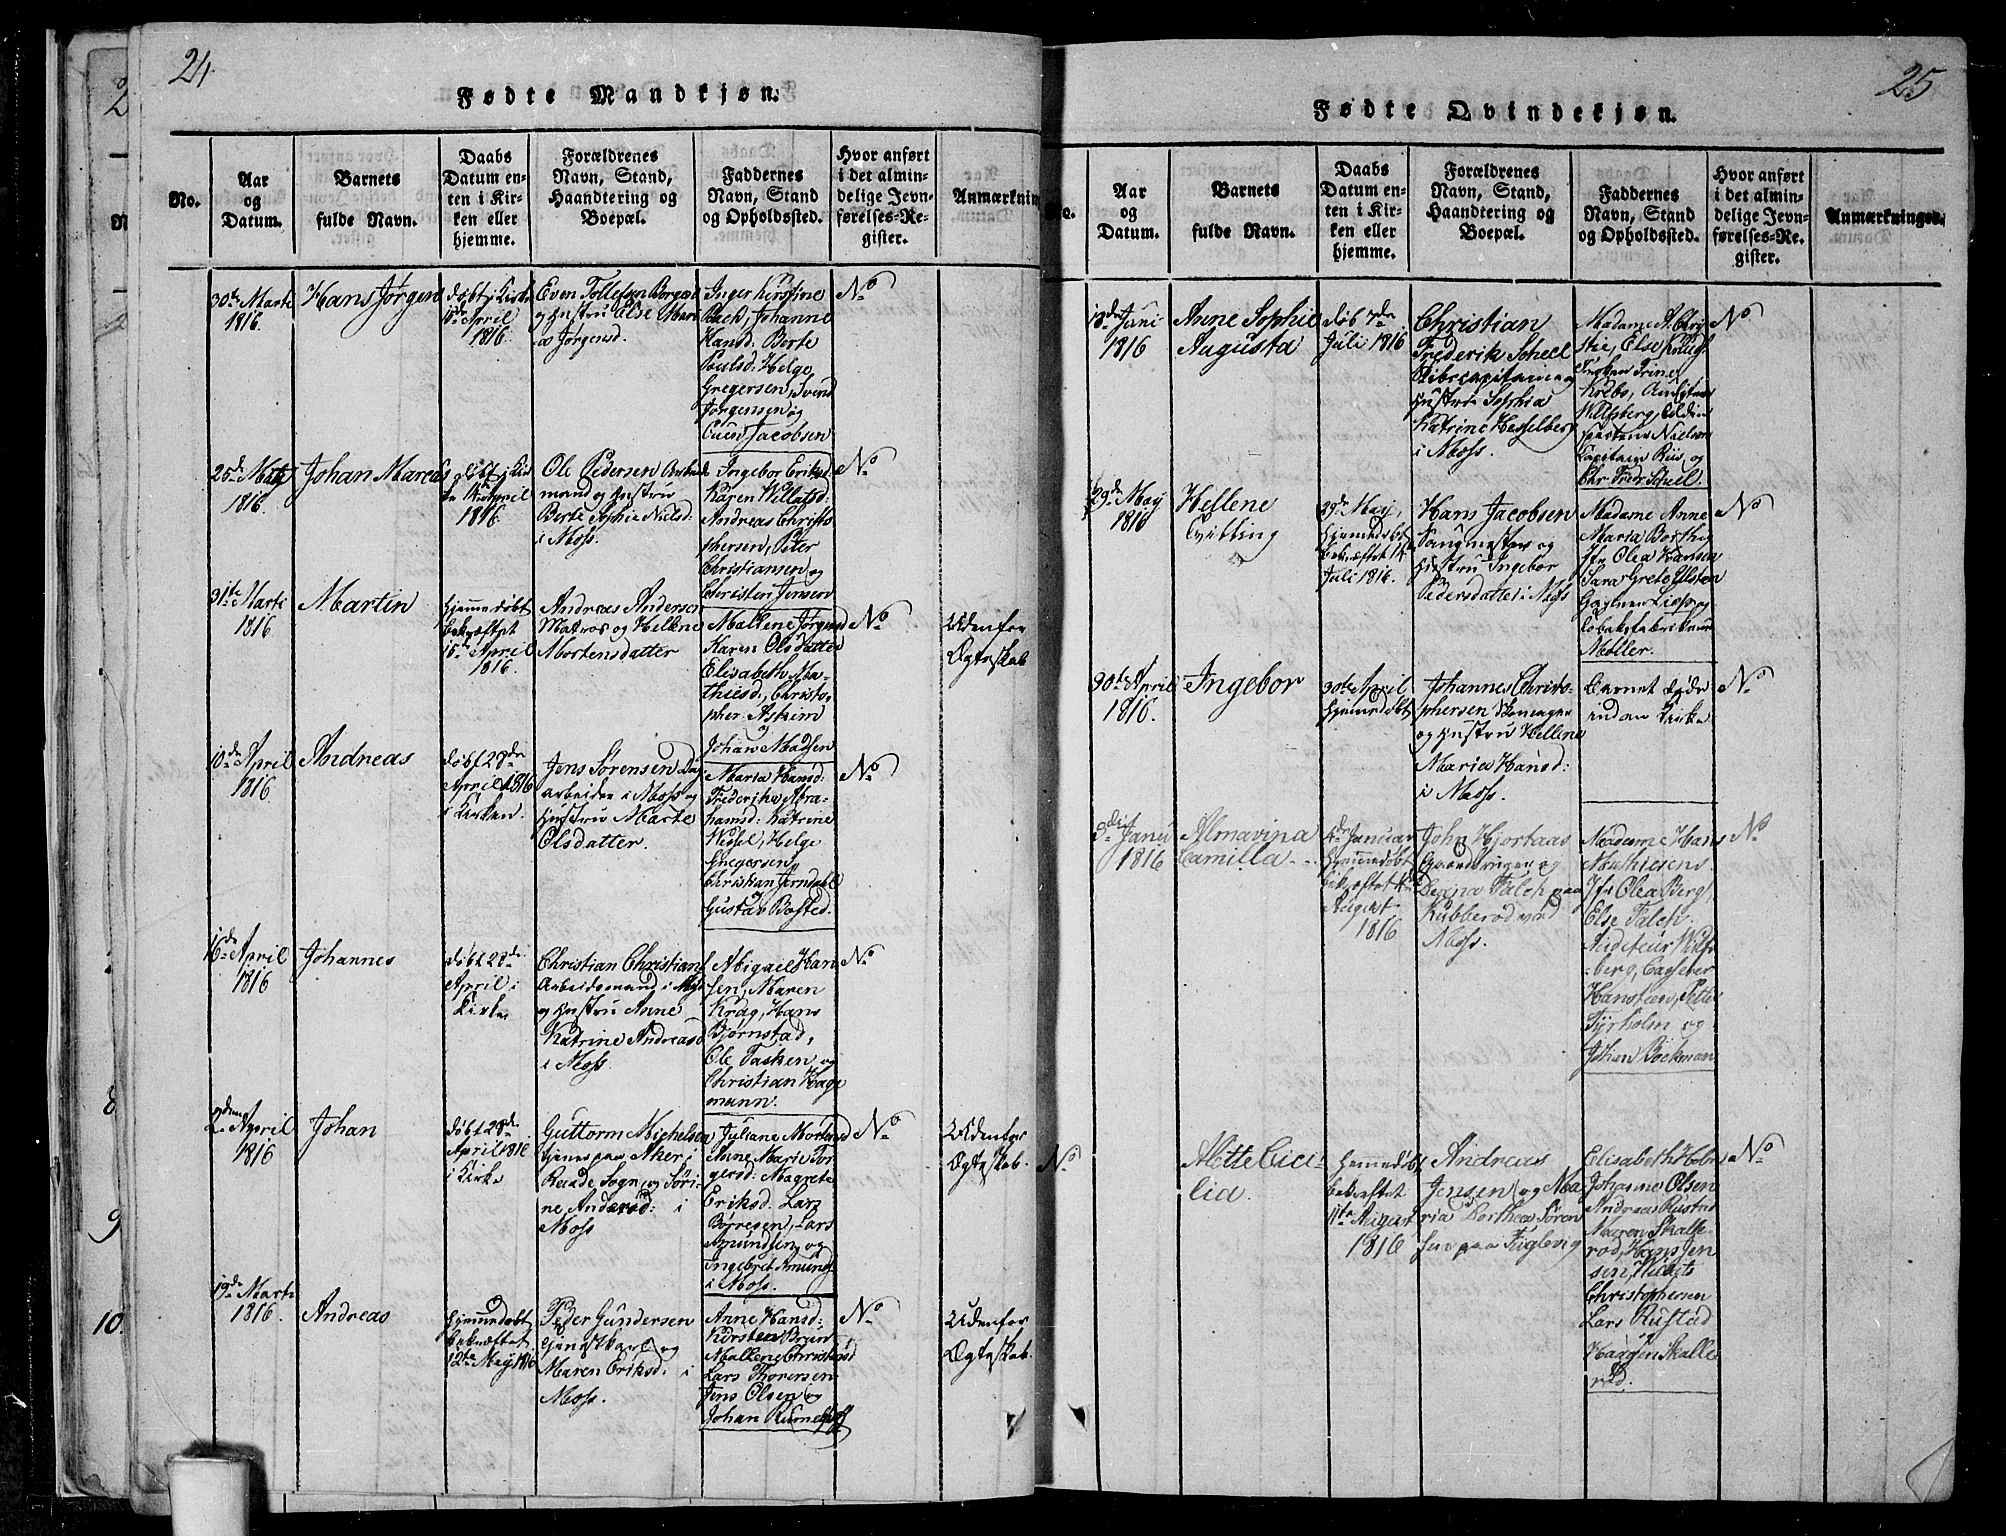 24
Fødte Mandkjøn.
No.
Aar
og
Datum.
Barnets
fulde Navn.
Daabs
Datum en-
ten i Kir-
ken eller
hjemme.
Forældrenes
Navn, Stand,
Haandtering og
Boepæl.
Faddernes
Navn, Stand
og Opholdssted.
Hvor anført
i det almin-
delige Jevn-
førelses-Re-
gister.
Anmærkning
30te Marti
1816.
Hans Jørgen
døbt i Kirke
April
1816
Even Tollefsen
og Hustru Else Mari
a Jørgensd.
Inger Kirstine
Back, Johanne
Hansd: Berte
Poulsd: Helge
Gregersen, Svend
Jørgensen og
Even Jacobsen
No
25de
1816.
Johan Marcus
døbt i Kir
April
1816
Ole Pedersen
mand og Hustru
Berte Sophie Nielsd:
i Moss.
Ingebor Eriksd.
Karen Willatsd:
Andreas Christo
phersen, Peter
Christiansen og
Christen Jensen
No
31te Marti
1816
Martin
Hjemmedøbt
bekræftet
April
1816.
Andreas Andersen
Matros og Hellene
Mortensdatter
Mallene Jørgensd
Karen Olsdatter
Elisabeth Ma-
thiesd:, Christo-
pher Askim
og
Johan Madsen
No
Udenfor
Ægteskab
10de April
1816
Andreas
døbt 28de
April 1816
i Kirken.
Jens Sørensen Dag
arbeider i Moss og
Hustru Marte
Olsdatter.
Maria Hansd:
Frederike Abra-
hamsd: Katrine
Wessel, Helge
Gregersen,
Christian Jerndahl
og
Gustav Bosted.
No
16de April
1816
Johannes
døbt 28de
April i
Kirke
Christian Christians
Arbeidsmand i Moss
og Hustru Anne
Katrine Andreasd
i Moss.
Abigael Han
sen, Maren
Krag, Hans
Bjørnstad,
Ole Tasken og
Christian Hage
mann.
No
2den April
1816
Johan
døbt 28de
April 1816
i Kirke
Guttorm Michelsen
tjener paa Aker i
Raade Sogn og Søri-
ne Andersd: i
Moss
Juliane Mortensd
Anne Marie Tor
gersd: Magrete
Eriksd. Lars
Børresen, Lars
Amundsen og
Ingebrit Amunds
i Moss.
No
Udenfor
Ægteskab.
19de Marti
1816.
Andreas
Hjemmedøbt
bekræftet
12te May 1816
Peder Gundersen
tjenestkarl og
Maren Eriksd. i
Moss.
Anne Hansd:
Kirsten Brun
Mallene Christensd
Lars Thoresen
Jens Olsen og
Johan
No
Udenfor
Ægteskab.
8
9
10.
25
Fødte Qvindekjøn.
No.
Aar
og
Datum.
Barnets
fulde Navn.
Daabs
Datum en-
ten i Kir-
ken eller
hjemme.
Forældrenes
Navn, Stand,
Haandtering og
Boepæl.
Faddernes
Navn, Stand
og Opholdssted.
Hvor anført
i det almin-
delige Jevn-
førelses-Re-
gister.
Anmærkninger.
18de Juni
1816
Anne Sophie
Augusta
døb 7de
Juli 1816
Christian
Frederik Scheel
og
Hustrue Sophia
Katrine Hesselberg
i Moss.
Madame A: Chri
stie, Else
Trine
Krebs,
Wilsberg,
Nielsen
Capitain Riis, og
Chr Fred Scheel.
No
29de May
1816
Hellene
29de May,
Hjemmedøbt
bekræftet
Juli 1816.
Hans Jacobsen
Saugmester og
Hustru Ingebor
Pedersdatter i Moss
Madame Anne
Maria Berthy
Jfr Olea Hansen
Sara Grete
og
Tobaksfabrikeur
Møller.
No
30te April
1816.
Ingebor
30te April
Hjemmedøbt
Johannes Christo-
phersen Skomager
og Hustru Hellene
Maria Hansd:
i Moss.
Barnet døde
indon Kirke
No
3die Janu
1816
Almavina
Camilla
4de Januar
Hjemmedøbt
bekræftet
August
1816
John Hjortaas
Gaardbruger og
Falch paa
Kubberød ved
Moss.
Madame Hans
Mathiesens
Jfr Olea Berg,
Else Falch.
Wils-
berg,
Hansteen, Petter
Tyrholm og
Johan Bockman
No
No
Mette Cici-
lia.
Hjemmedøbt
bekræftet
11te August
1816
Andreas
Jensen og Ma
ria Dorthea Søren
sen paa Fuglevig
Elisabeth Holm
Johanne Olsen
Andrea Rustad
Maren Skalle
rød, Hans Jen
sen,
Christophersen
Lars Rustad
og
Skalle
rød.
No